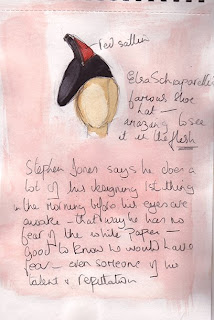 red satin
Elsa Schiaparelli
famous shoe
hat -
amazing to see
it in the flesh
Stephen Jones says he does a
lot of his designing 1st thing
in the morning before his eyes are
awake - that way he has no
fear of the white paper -
good to know he would have
fear - even someone of his
talent & reputation